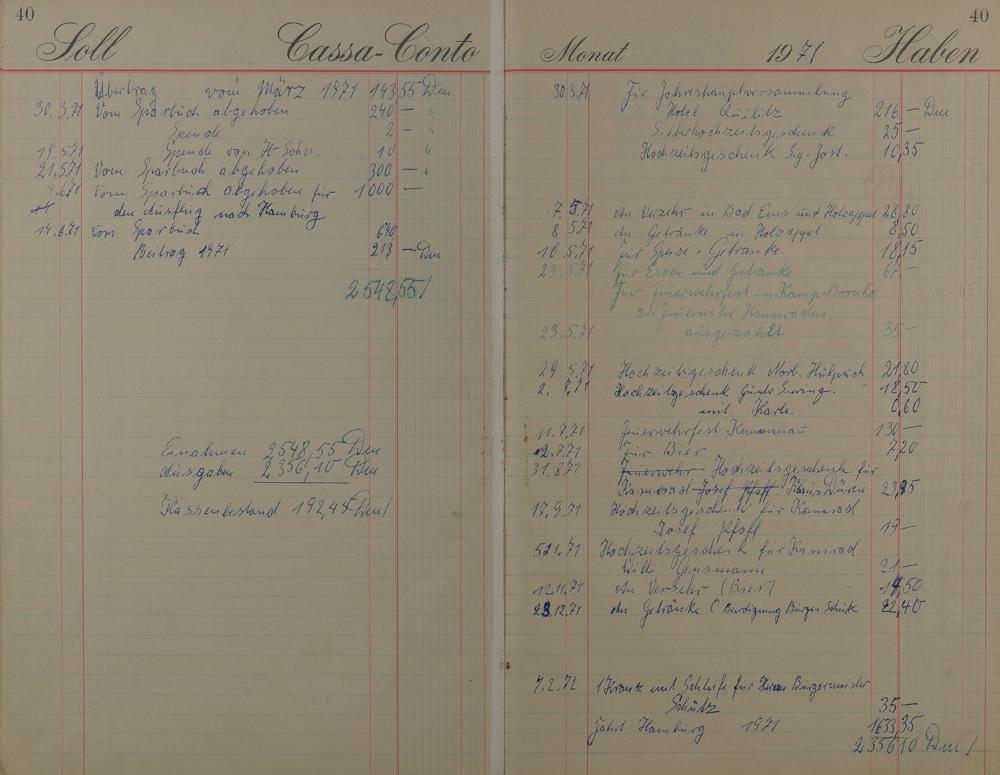 40
Soll Cassa-Conto
Übertrag vom März 1971 193,55 Dm
30.3.71 Vom Sparbuch abgehoben 240 — "
Spende 2 — "
19.5.71 Spende von H. Sohn. 10 "
21.5.71 Vom Sparbuch abgehoben 300 — "
4.6.71 Vom Sparbuch abgehoben für 1000 —
den Ausflug nach Hamburg
14.6.71 Vom Sparbuch 690
Beitrag 1971 213 — Dm
2548,55/
Einahmen 2548,55 Dm
Ausgaben 2356,10 Dm
Kassenbestand 192,45 Dm/
40
Monat 1971 Haben
30.3.71 Für Jahreshauptversammlung
Hotel Quilitz 216 — Dm
Silberhochzeitsgeschenk 25 —
Hochzeitsgeschenk Jost. 10,35
7.5.71 An Verzehr in Bad Ems und Holzappel 28,80
8 5.71 An Getränke in Holzappel 8,50
16.5.71 Für Speise + Getränke. 18,15
23.5.71 Für Essen und Getränke 67 —
Für Feuerwehrfest in Kamp-Bornho
an Feuerwehr Kameraden
23.5.71 ausgezahlt 35 —
29.5.71 Hochzeitsgeschenk Norb. 21,80
2. 7.71 Hochzeitgeschenk Günter 18,50
mit. Karte. 0,60
11.7.71 Feuerwehrfest Kemmenau 130 —
12.7.71 Für Bier 7,20
31.8.71 Feuerwehr Hochzeitsgeschenk für
Kamerad Josef Pfaff Klaus Düren 23,95
17.9.71 Hochzeitsgeschenk für Kamrad
Josef Pfaff 19 —
Hochzeitsgeschenk für Kamrad
Willi 21 —
12.11.71 An Verzehr (Bier) 14,50
23.12.71 An Getränke (Beerdigung Bürger Schütz 22,40
7.2.72 1 Kranz mit Schleife für Herrn Bürgermeister
Schütz 35 —
Fahrt Hamburg 1971 1633,35
2356,10 Dm/